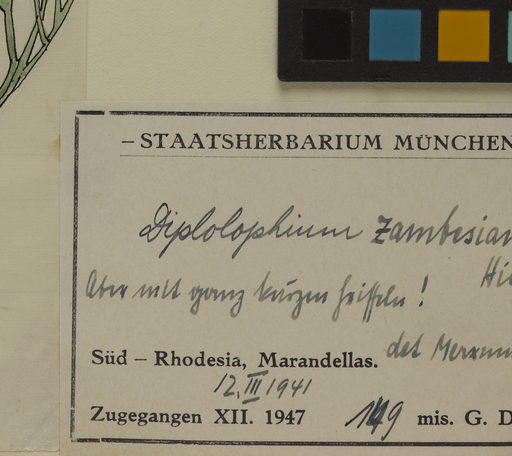 – STAATSHERBARIUM MÜNCHEN
Diplolophium zambesian
Hie
Aber mit ganz kurzen Griffeln !
Süd – Rhodesia, Marandellas.
det Merxmü
12. III 1941
Zugegangen XII. 1947 149 mis. G. D